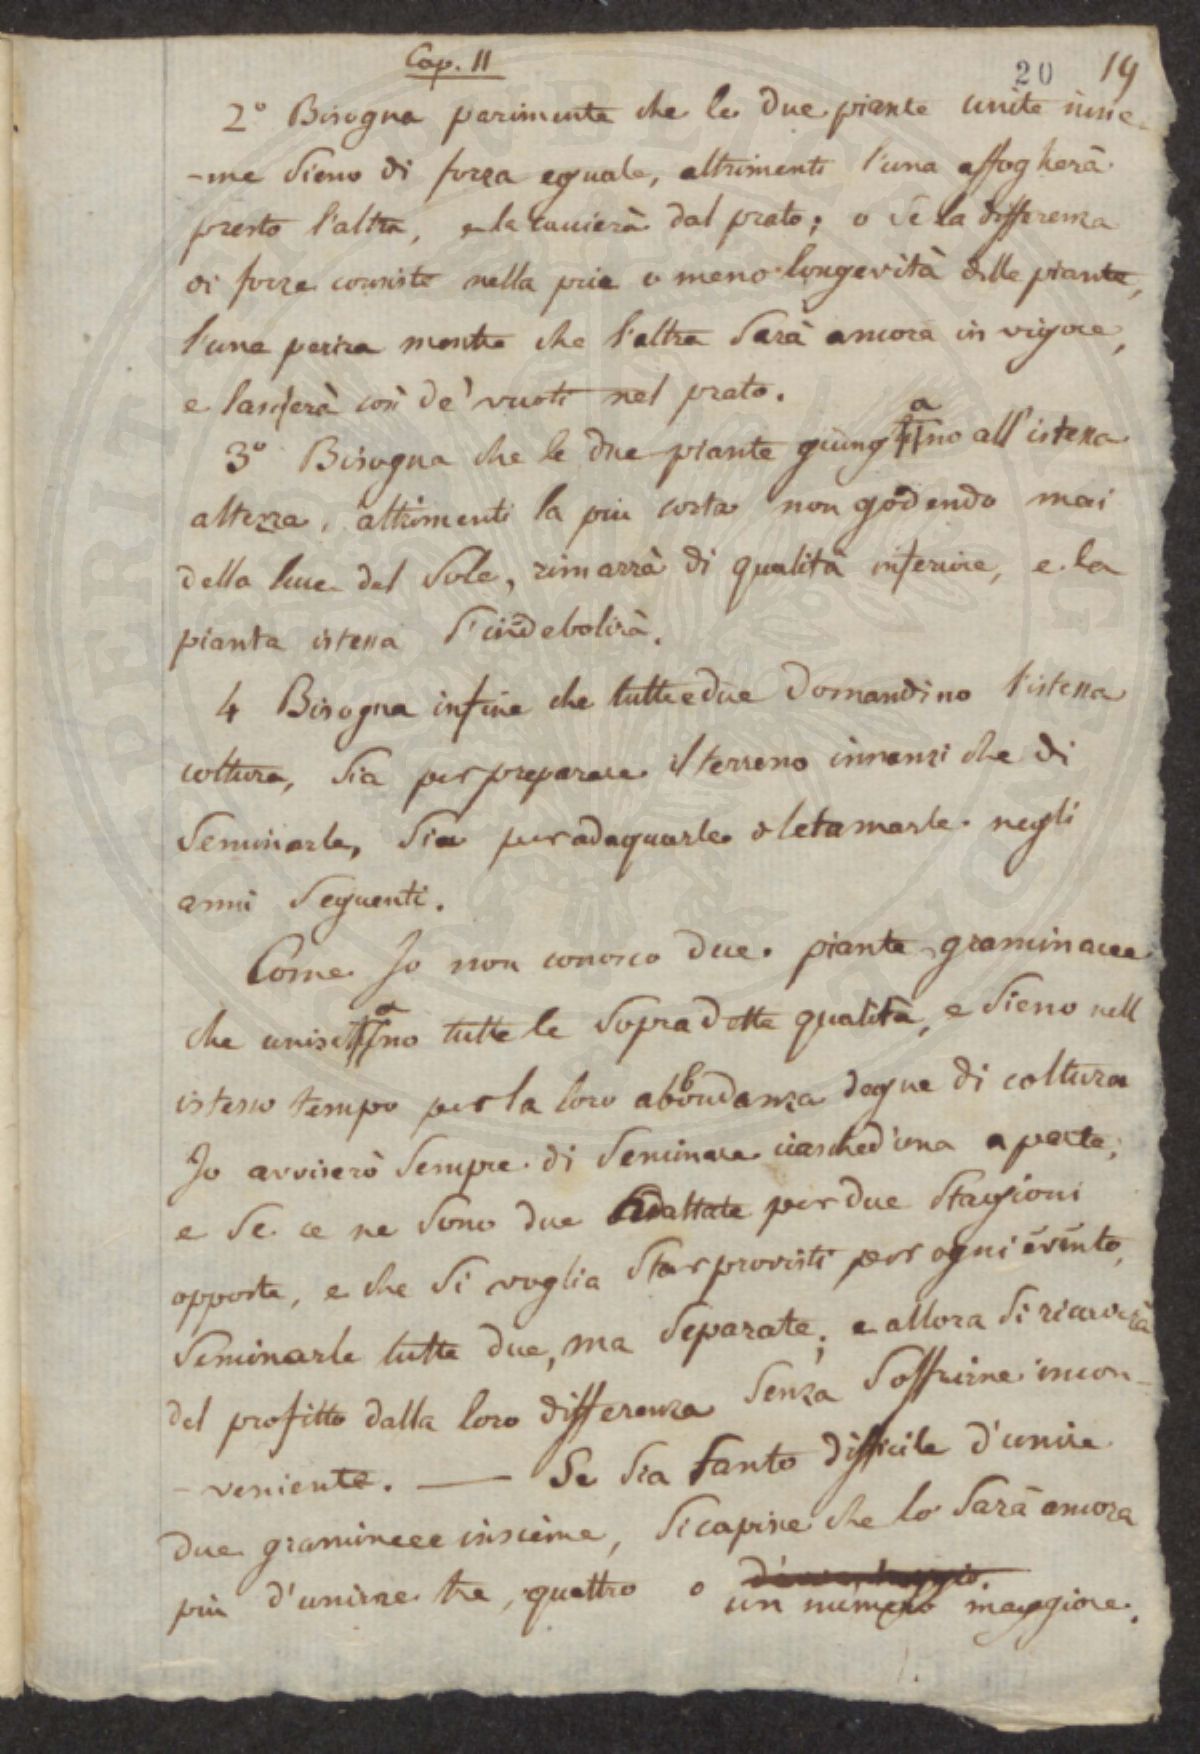 Cap. II
20 19
2° Bisogna parimente che le due piante unite insie-
-me sieno di forza eguale, altrimenti l'una affogherà
presto l'altra, e la caccierà dal prato; o se la differenza
di forze consiste nella più o meno longevità delle piante,
l'una perirà mentre che l'altra sarà ancora in vigore,
e lascierà così de' vuoti nel prato.
3° Bisogna che le due piante giungano all'istessa
altezza, altrimenti la più corta non godendo mai
della luce del Sole, rimarrà di qualità inferiore, e la
pianta istessa s'indebolirà.
4 Bisogna infine che tutte e due domandino l'istessa
coltura, sia per preparare il terreno innanzi che di
seminarle, sia per adaquarle o letamarle negli
anni seguenti.
Come Io non conosco due piante graminacee
che uniscano tutte le sopradette qualità, e sieno nell
istesso tempo per la loro abbondanza degne di coltura
Io avviserò sempre di seminare ciasched'una a parte;
e se ce ne sono due adattate per due stagioni
opposte, e che si voglia star provisti per ogni evento,
seminarle tutte due, ma separate; e allora si ricaverà
del profitto dalla loro differenza senza soffrirne incon-
-veniente. — Se sia tanto difficile d'unire
due graminee insieme, si capisce che lo sarà ancora
più d'unirne tre, quattro o
un numero maggiore.